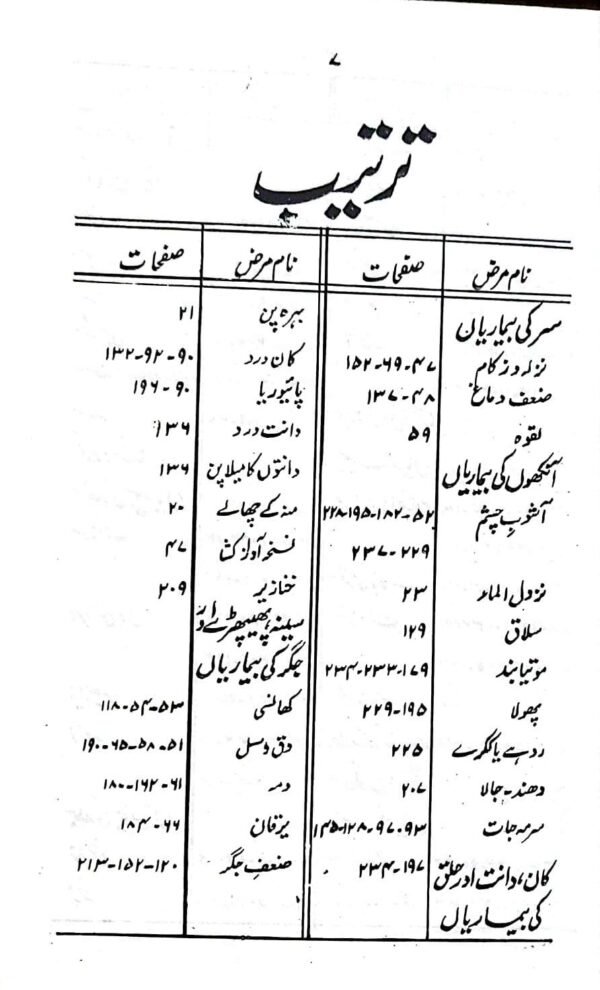 ۷
ترتیب
نام مرض صفحات
سر کی بیماریاں
نزلہ و زکام ۴۷-۶۹-۱۵۲
ضعف دماغ ۴۸-۱۳۷
لقوہ ۵۹
آنکھوں کی بیماریاں
آشوبِ چشم ۵۲-۱۸۲-۱۹۵-۲۲۸
۲۲۹-۲۳۷
نزول الماء ۲۳
سلاق ۱۲۹
موتیا بند ۱۷۹-۲۳۳-۲۳۴
پھولا ۱۹۵-۲۲۹
روہے یا ککرے ۲۲۵
دھند-جالا ۲۰۷
سرمہ جات ۹۳-۹۷-۱۲۸-۱۴۵
کان، دانت اور حلق ۱۹۷-۲۳۴
کی بیماریاں
نام مرض صفحات
بہرہ پن ۲۱
کان درد ۹۰-۹۲-۱۳۲
پائیوریا ۹۰-۱۹۶
دانت درد ۱۳۶
دانتوں کا میلا پن ۱۳۶
منہ کے چھالے ۲۰
نسخہ آواز کشا ۴۷
خنازیر ۲۰۹
سینہ، پھیپھڑے اور
جگر کی بیماریاں
کھانسی ۵۳-۵۴-۱۱۸
دق و سل ۵۱-۵۸-۶۵-۱۹۰
دمہ ۶۱-۱۶۲-۱۸۰
یرقان ۶۶-۱۸۴
ضعفِ جگر ۱۲۰-۱۵۲-۲۱۳